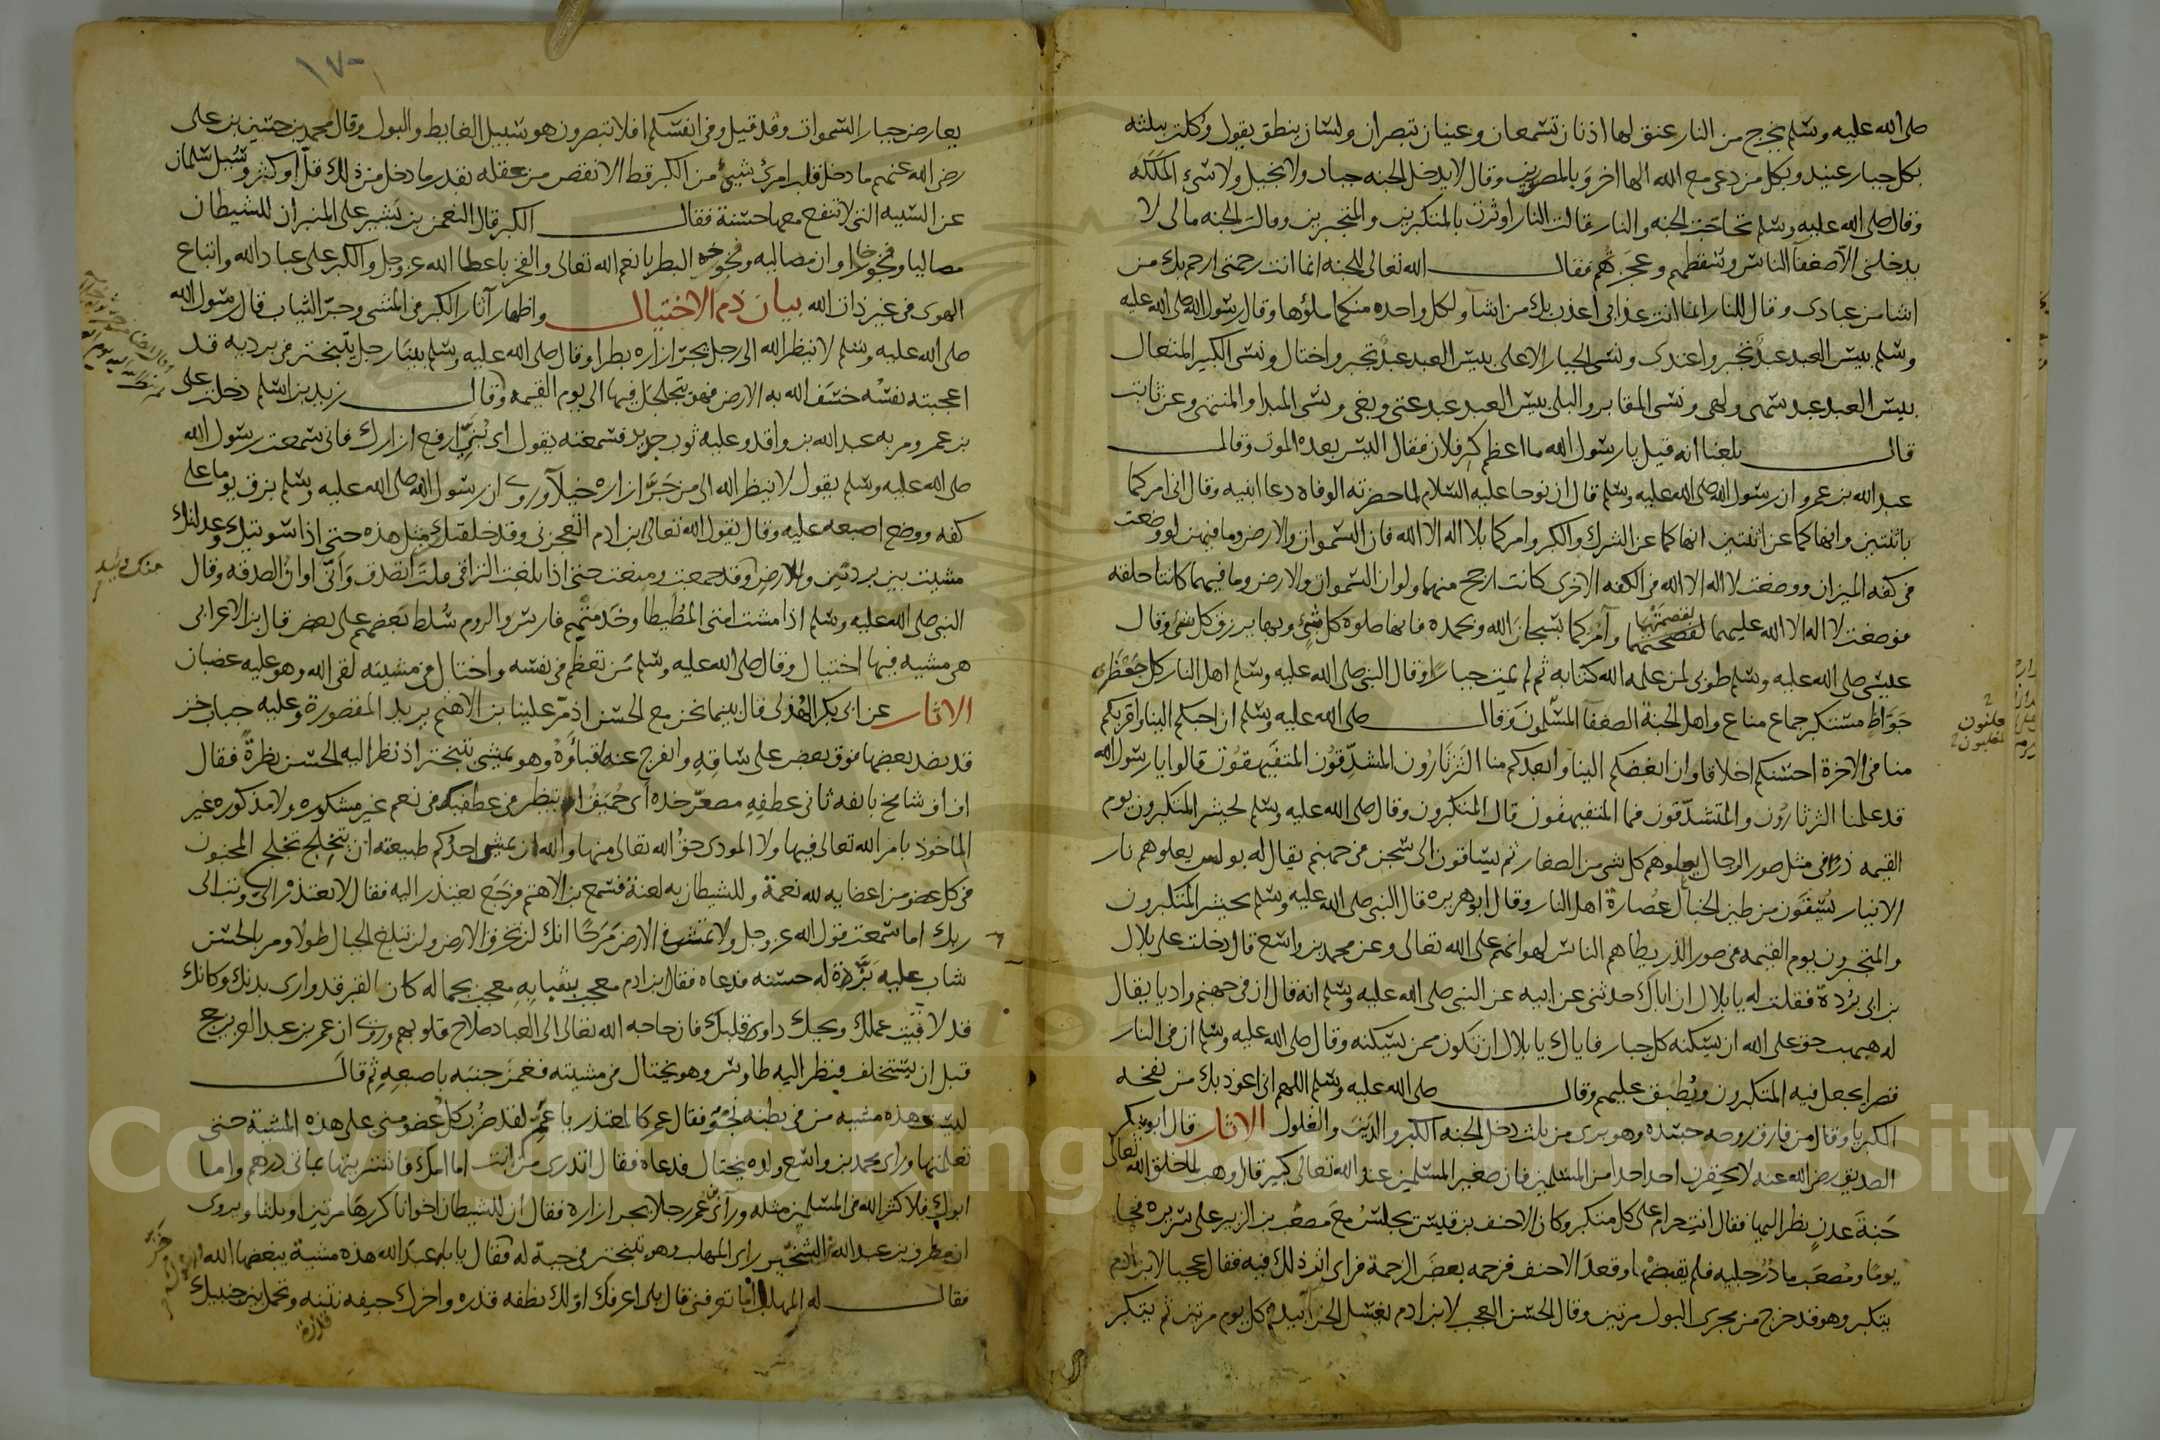 صلى الله عليه وسلم يخرج من النار عنق لها اذنان تسمعان وعينان تبصران ولسان ينطق يقول وكلت بثلثه
بكل جبار عنيد وبكل من دعى مع الله الها اخر وبالمصورين وقال لا يدخل الجنه جبار ولا بخيل ولا سئ الملكه
وقال صلى الله عليه وسلم تحاجت الجنه والنار فقالت النار اوثرت بالمتكبرين والمتجبرين وقالت الجنه مالى لا
يدخلنى الا ضعفآ الناس وسقطهم وعجزهم فقال الله تعالى للجنه انما انت رحمتى ارحم بك من
اشا من عبادى وقال للنار انما انت عذابى اعذب بك من اشآ ولكل واحده منكما ملؤها وقال رسول الله صلى الله عليه
وسلم بيس العبد عبد تجبر واعتدى ونسى الجبار الاعلى بيس العبد عبد تجبر واختال ونسى الكبير المتعال
بيس العبد عبد سهى ولهى ونسى المقابر والبلى بيس العبد عبد عتى وبغى ونسى المبدا والمنتهى وعن ثابت
قال بلغنا انه قيل يا رسول الله ما اعظم كبر فلان فقال اليس بعده الموت وقال
عبد الله بن عمرو ان رسول الله صلى الله عليه وسلم قال ان نوحا عليه السلام لما حضرته الوفاه دعا ابنيه وقال انى امركما
باثنتين وانهاكما عن اثنتين انهاكما عن الشرك والكبر وامركما بلا اله الا الله فان السموات والارض وما فيهن لو وضعت
فى كفه الميزان ووضعت لا اله الا الله فى الكفه الاخرى كانت ارجح منهما ولو ان السموات والارض وما فيهما كانتا حلقه
فوضعت لا اله الا الله عليهما لقصمتهما وآمركما بسبحان الله وبحمده فانها صلوه كل شئ وبها يرزق كل شئ وقال
عيسى صلى الله عليه وسلم طوبى لمن علمه الله كتابه ثم لم يمت جبارًا وقال النبى صلى الله عليه وسلم اهل النار كل جعظرى
جواظ مستكبر جماع مناع واهل الجنة الضعفآ وقال صلى الله عليه وسلم ان احبكم الينا واقربكم
منا فى الاخرة احسنكم اخلاقا وان ابغضكم الينا وابعدكم منا الثرثارون المتشدقون المتفيهقون قالوا يا رسول الله
قد علمنا الثرثارون والمتشدقون فما المتفيهقون قال المتكبرون وقال صلى الله عليه وسلم يحشر المتكبرون يوم
القيمه ذرًا فى مثل صور الرجال يعلوهم كل شى من الصغار ثم يساقون الى سجن فى جهنم يقال له بولس يعلوهم نار
الانيار يسقون من طين الخبال عصارة اهل النار وقال ابو هريره قال النبى صلى الله عليه وسلم يحشر المتكبرون
والمتجبرون يوم القيمه فى صور الذر يطاهم الناس لهوانهم على الله تعالى وعن محمد بن واسع قال دخلت على بلال
بن ابى بردة فقلت له يا بلال ان اباك حدثنى عن ابيه عن النبى صلى الله عليه وسلم انه قال ان فى جهنم واديا يقال
له هبهب حق على الله ان يسكنه كل جبار فاياك يا بلال ان تكون ممن يسكنه وقال صلى الله عليه وسلم ان فى النار
قصرا يجعل فيه المتكبرون ويطبق عليهم وقال صلى الله عليه وسلم اللهم انى اعوذ بك من نفخه
الكبريا وقال من فارق روحه جسده وهو برى من ثلث دخل الجنه الكبر والدين والغلول الاثار قال ابو بكر
الصديق رضى الله عنه لا يحقرن احد احدا من المسلمين فان صغير المسلمين عند الله تعالى كبير قال وهب لما خلق الله تعالى
جنة عدن نظر اليها فقال انت حرام على كل متكبر وكان الاحنف بن قيس يجلس مع مصعب بن الزبير على سريره فجا
يوما ومصعب ماد رجليه فلم يقبضهما وقعد الاحنف فزحمه بعض الزحمة فراى اثر ذلك فيه فقال عجبا لابن ادم
يتكبر وهو قد خرج من مجرى البول مرتين وقال الحسن العجب لابن ادم يغسل الخرا بيده كل يوم مرتين ثم يتكبر
يعارض جبار السموات وقد قيل وفى انفسكم افلا تبصرون هو سبيل الغايط والبول وقال محمد بن حسين بن على
رضى الله عنهم ما دخل قلب امرئ شئ من الكبر قط الا نقص من عقله بقدر ما دخل من ذلك قل او كثر وسيل سلمان
عن السيه التى لا تنفع معها حسنة فقال الكبر قال النعمن بن بشير على المنبر ان للشيطان
مصاليا وفخوخا وان مصاليه وفخوخه البطر بانعم الله تعالى والفخر باعطا الله عز وجل والكبر على عباد الله واتباع
الهوى فى غير ذات الله بيان ذم الاختيال واظهار آثار الكبر فى المشى وجر الثياب قال رسول الله
صلى الله عليه وسلم لا ينظر الله الى رجل يجر ازاره بطرا وقال صلى الله عليه وسلم بينا رجل يتبختر فى برديه قد
اعجبته نفسه خسف الله به الارض فهو يتجلجل فيها الى يوم القيمه وقال زيد بن اسلم دخلت على
بن عمر ومر به عبد الله بن واقد وعليه ثوب جديد فسمعته يقول اى بنى ارفع ازارك فانى سمعت رسول الله
صلى الله عليه وسلم يقول لا ينظر الله الى من جر ازاره خيلآ وروى ان رسول الله صلى الله عليه وسلم بزق يوما على
كفه ووضع اصبعه عليه وقال يقول الله تعالى ابن ادم اتعجزنى وقد خلقتك مثل هذه حتى اذا سويتك وعدلتك
مشيت بين بردين وللارض وقد جمعت ومنعت حتى اذا بلغت التراقى قلت اتصدق وانى اوان الصدقه وقال
النبى صلى الله عليه وسلم اذا مشت امتى المطيطا وخدمتهم فارس والروم سلط بعضهم على بعض قال ابن الاعرابى
هى مشيه فيها اختيال وقال صلى الله عليه وسلم من تعظم فى نفسه واختال فى مشيته لقى الله وهو عليه غضبان
الاثار عن ابى بكر الهذلى قال بينما نحن مع الحسن اذ مر علينا بن الاهتم يريد المقصورة وعليه جباب خز
قد نضد بعضها فوق بعض على ساقه وانفرج عنها قباؤه وهو يمشى يتبختر اذ نظر اليه الحسن نظرة فقال
اف اف شامخ بانفه ثانى عطفه مصعر خده اى حميق ينظر فى عطفيه فى نعم غير مشكوره ولا مذكوره غير
الماخوذ بامر الله تعالى فيها ولا المودى حق الله تعالى منها والله ان يمشى احدكم طبيعته ان يتخلج تخلج المجنون
فى كل عضو من اعضايه لله نعمة وللشيطان به لعنة فسمع بن الاهتم فرجع يعتذر اليه فقال لا تعتذر الى وتب الى
ربك اما سمعت قول الله عز وجل ولا تمش فى الارض مرحًا انك لن تخرق الارض ولن تبلغ الجبال طولا ومر بالحسن
شاب عليه بزة له حسنه فدعاه فقال ابن ادم معجب بشبابه معجب بجماله كان القبر قد وارى بدنك وكانك
قد لاقيت عملك ويحك داو قلبك فان حاجه الله تعالى الى العباد صلاح قلوبهم وروى ان عمر بن عبد العزيز حج
قبل ان يستخلف فنظر اليه طاوس وهو يختال فى مشيته فغمز جنبه باصبعه ثم قال
ليست هذه مشيه من فى بطنه خرؤ فقال عمر كالمعتذر يا عم لقد ضرب كل عضو منى على هذه المشية حتى
تعلمتها وراى محمد بن واسع ولده يختال فدعاه فقال اتدرى من انت اما امك فاشتريتها بماتى درهم واما
ابوك فلا كثر الله فى المسلمين مثله وراى بن عمر رجلا يجر ازاره فقال ان للشيطان اخوانا كررها مرتين او ثلثا ويروى
ان مطرف بن عبد الله بن الشخير راى المهلب وهو يتبختر فى جبة له فقال يابا عبد الله هذه مشية يبغضها الله
فقال له المهلب اما تعرفنى قال بلى اعرفك اولك نطفه قذره واخرك جيفه نتنه وتحمل بين جنبيك